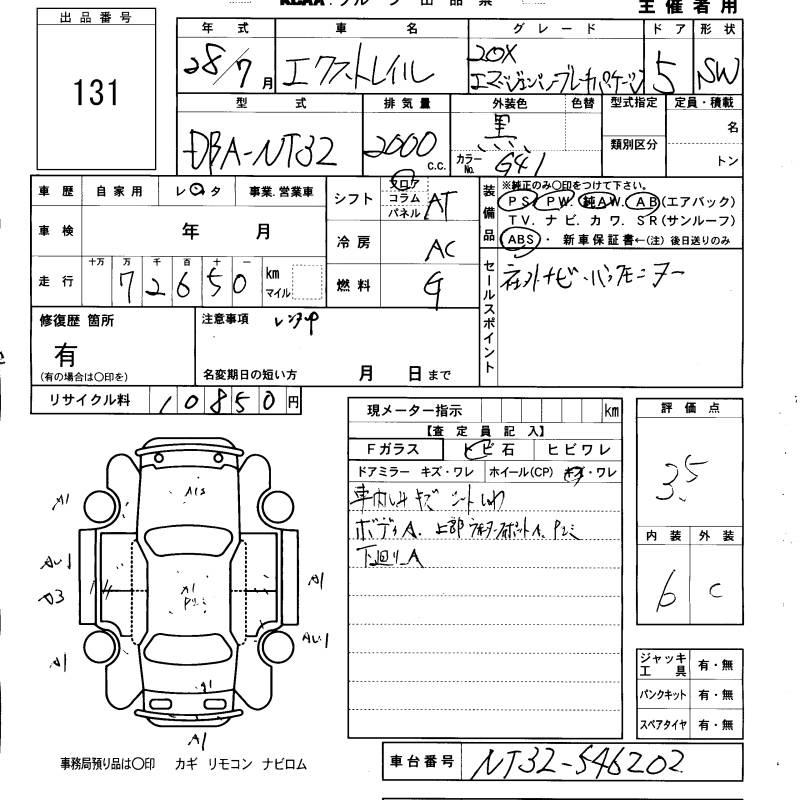 KCAA.グループ出品票
主催者用
出品番号
131
年式 車名 グレード ドア 形状
28/7月 エクストレイル 20X
エマージェンシーブレーキパッケージ 5 SW
型式 排気量 外装色 色替 型式指定 定員・積載
DBA-NT32 2000 c.c. 黒 カラーNo. G41 類別区分 名
トン
車歴 自家用 レンタ 事業.営業車
シフト フロア コラム パネル AT
装備品 ※純正のみ○印をつけて下さい。
PS PW 純AW AB(エアバック)
TV. ナビ. カワ. SR(サンルーフ)
ABS・新車保証書←(注)後日送りのみ
車検 年 月
冷房 AC
走行 十万 万 千 百 十 一 km マイル
7 2 6 5 0
燃料 G
セールスポイント 社外ナビ・バックモニター
修復歴 箇所
有
(有の場合は○印を)
注意事項 レンタ中
名変期日の短い方 月 日まで
リサイクル料 10850円
現メーター指示 km
【査定員記入】
Fガラス トビ石 ヒビワレ
ドアミラー キズ・ワレ ホイール(CP) キズ・ワレ
車内ムキズ シートしわ
ボディA.
下回りA
評価点
3.5
内装 外装
6 C
A1 A15
AU1
A3 A1 Pスミ A1
AU1
A1
A1
A1
ジャッキ工具 有・無
パンクキット 有・無
スペアタイヤ 有・無
事務局預り品は○印 カギ リモコン ナビロム
車台番号 NT32-546202